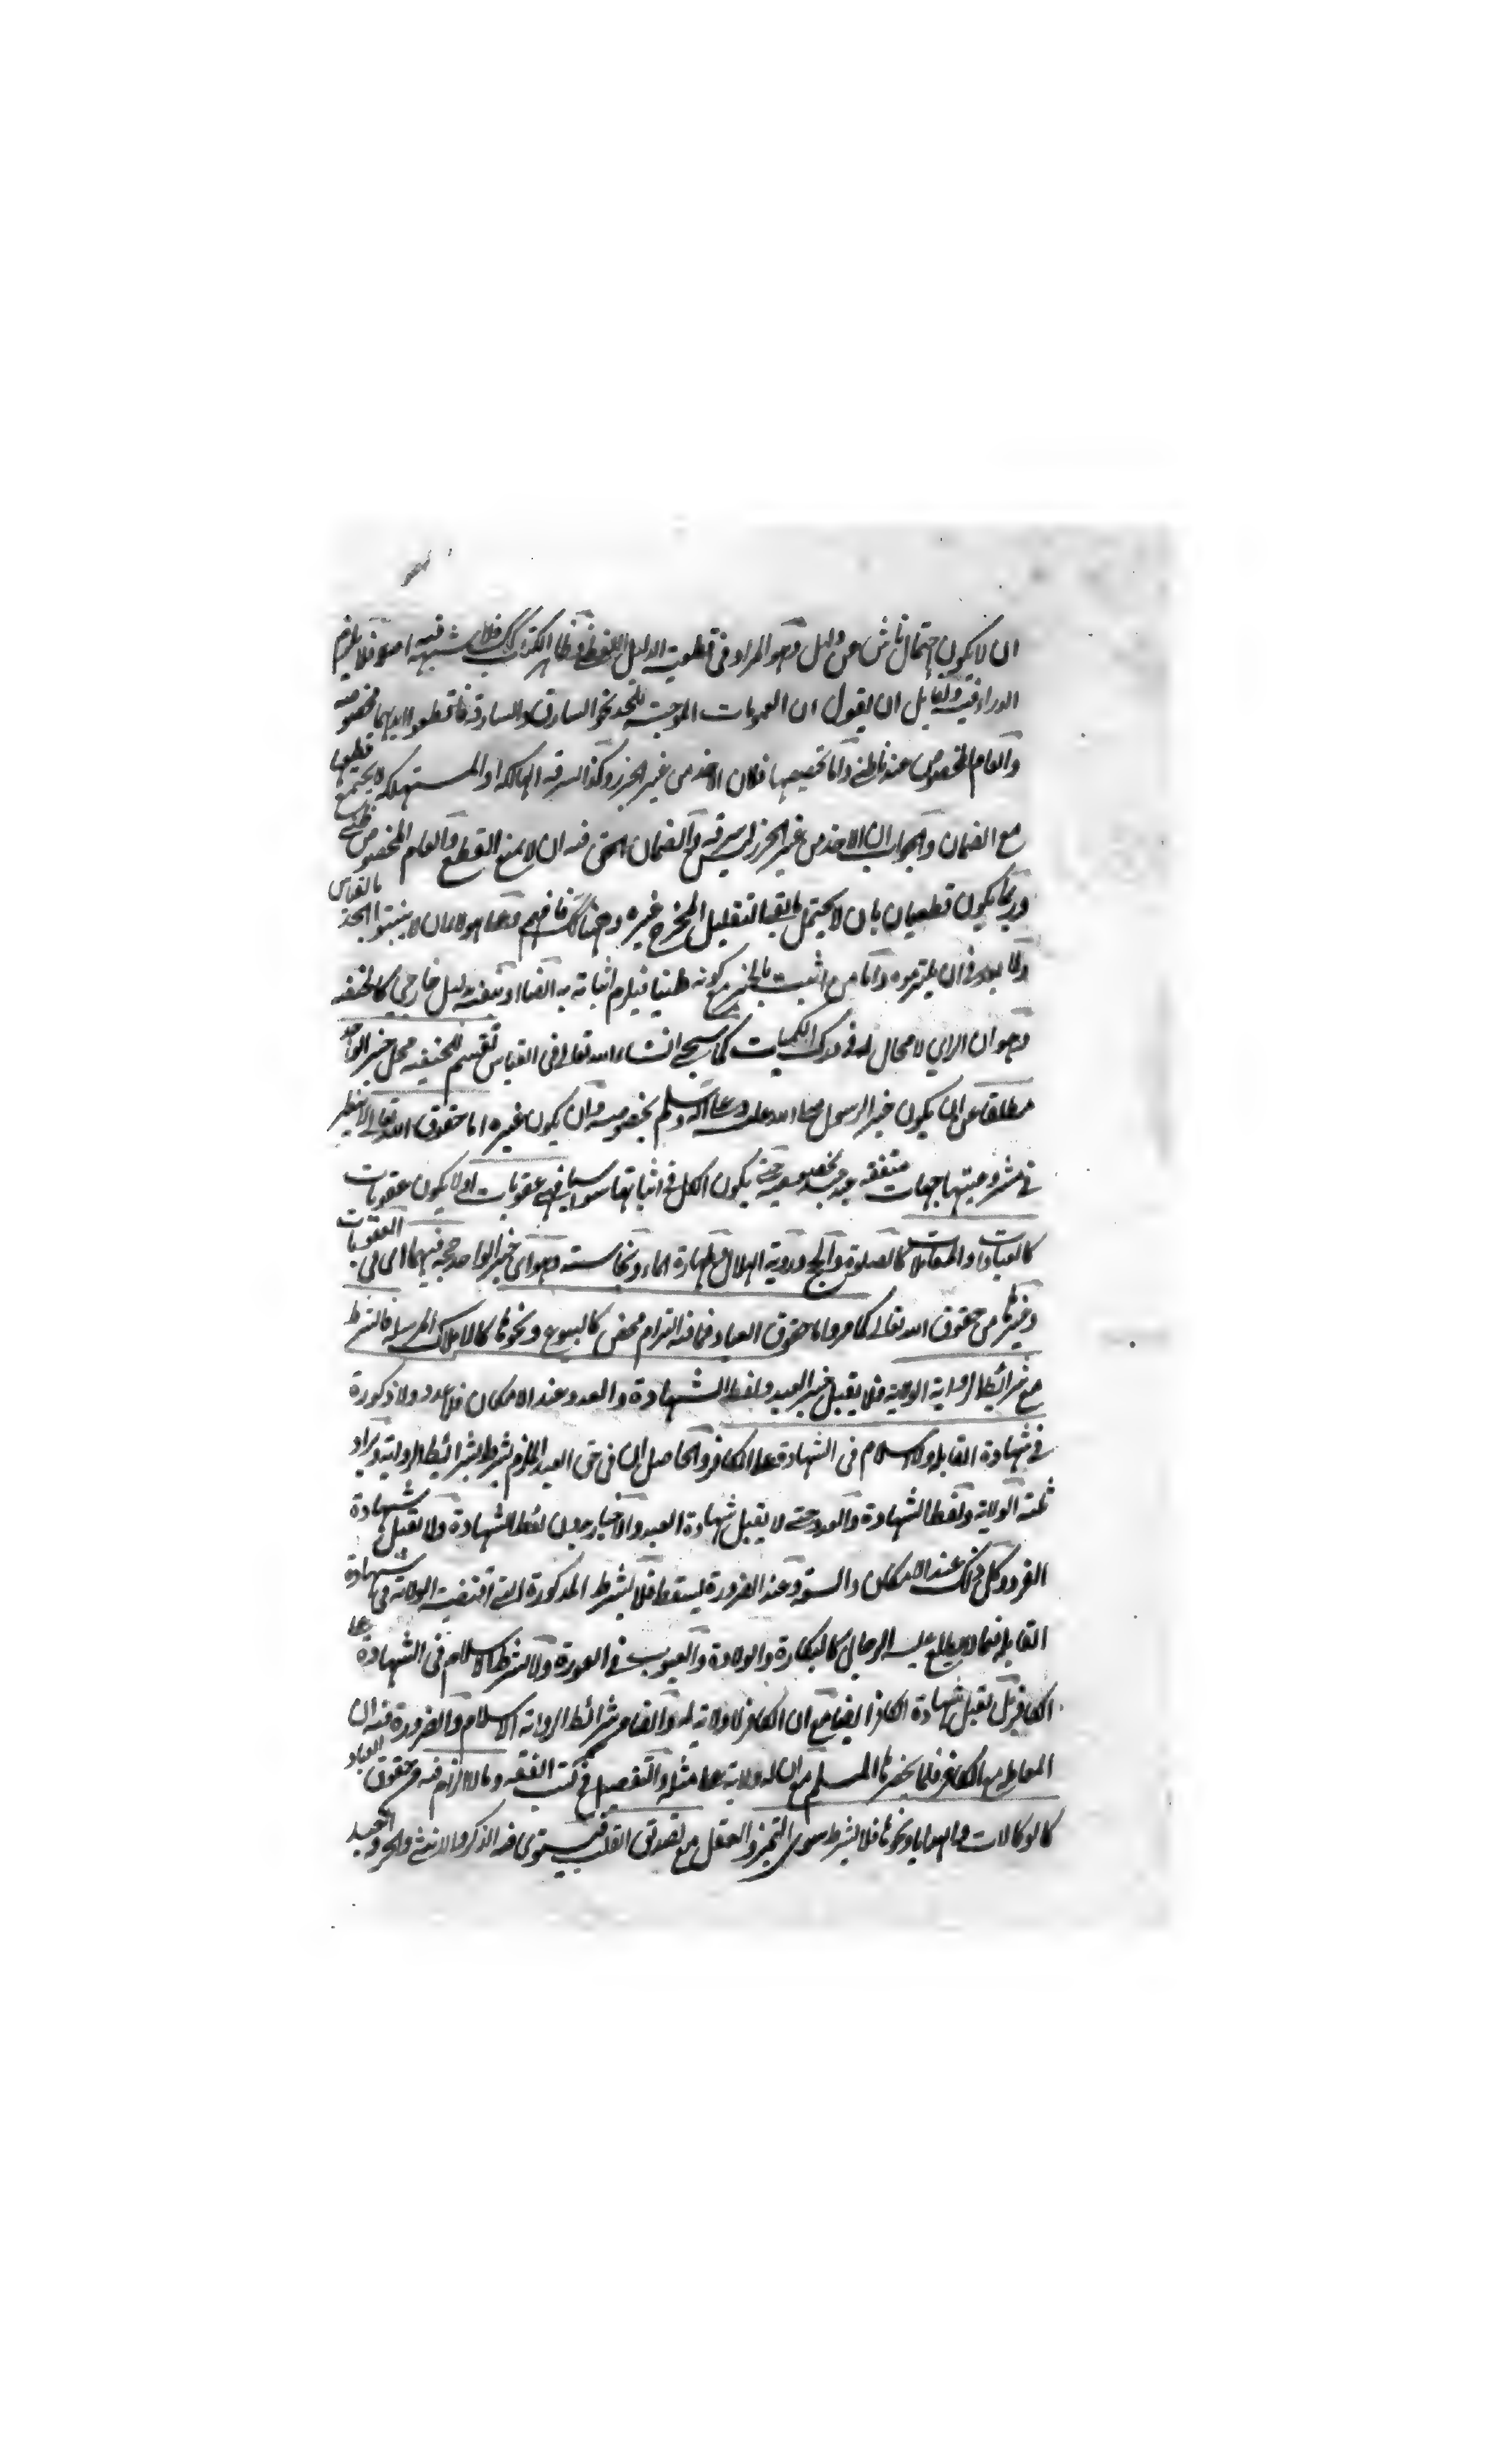 ان لا يكون احتمال ناش عن دليل وهو المراد فى قطعية الدليل اللفظى وظاهر الكتاب كذلك فلا شبهة فيه اصلا فلا يلزم
الدراء فيه ولقايل ان يقول ان العمومات الموجبة للحد نحو السارق والسارقة فاقطعوا ايديهما مخصوصة
والعام المخصوص عندنا ظنى واما تخصيصها فلان الاخذ من غير الحرز وكذا السرقة الهالكة او المستهلكة لا يجتمع قطعها
مع الضمان والجواب ان الاخذ من غير الحرز ليس سرقة والضمان الحق فيه ان لا يمنع القطع والعام المخصوص ظنى
وربما يكون قطعيا بان لا يحتمل التعليل المخرج غيره وههنا كذلك فافهم وهولاء ان لا يثبتوا الحد بالقياس
ولا بعد فى ان يلتزموه واما من اثبت بالخبر مع كونه ظنيا فيلزم اثباته به ايضا او نفيه بدليل خارجى كالحنفية
وهو ان الراى لا مجال له فى درك الكميات كما سيجى انشاء الله تعالى فى القياس تقسيم للحنفية محل خبر الواحد
مطلقا عن ان يكون خبر الرسول صلى الله عليه وعلى آله وسلم بخصوصه وان يكون غيره اما حقوق الله تعالى
فى مشروعيتها جهات متفقة حتى يكون الكل فى اثباتها سواسيا فهى عقوبات او لا يكون عقوبات
كالعبادات والمعاملات كالصلوة والحج ورؤية الهلال وطهارة الماء ونجاسته وهو اى خبر الواحد حجة فيهما اى فى العقوبات
وغيرها من حقوق الله تعالى كما مر واما حقوق العباد فما فيه الزام محض كالبيوع ونحوها كالاملاك المرسلة فالشرط
مع شرائط الرواية الولاية فلا يقبل خبر العبد ولفظ الشهادة والعدد عند الامكان فلا عدد ولا ذكورة
فى شهادة القابلة ولا اسلام فى الشهادة على الكافر والحاصل ان فى حق العبد الملزم يشترط شرائط الرواية ويزاد
ثلثة الولاية ولفظ الشهادة والعدد حتى لا يقبل شهادة العبد والاخبار بدون لفظ الشهادة ولا تقبل شهادة
الفرد وكل ذلك عند الامكان والسعة وعند الضرورة يسقط فلا يشترط المذكورة التى اقتضت الولاية فى شهادة
القابلة فيما لا يطلع عليه الرجال كالبكارة والولادة والعيوب فى العورة ولا يشترط الاسلام فى الشهادة على
الكافر بل تقبل شهادة الكافر ايضا مع ان الكافر لا ولاية له وايضا من شرائط الرواية الاسلام والضرورة فيه ان
المعاملة مع الكافر فلما يحضرها المسلم مع ان له ولاية على مثله والتفصيل فى كتب الفقه وما لا الزام فيه من حقوق العباد
كالوكالات والهدايا ونحوها فلا يشترط سوى التميز والعقل مع تصديق القلب فيستوى فيه الذكر والانثى والحر والعبد